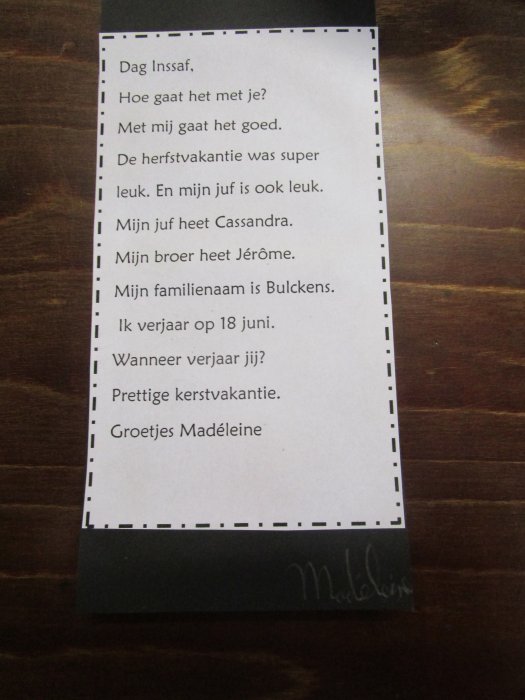 Dag Inssaf,
Hoe gaat het met je?
Met mij gaat het goed.
De herfstvakantie was super
leuk. En mijn juf is ook leuk.
Mijn juf heet Cassandra.
Mijn broer heet Jérôme.
Mijn familienaam is Bulckens.
Ik verjaar op 18 juni.
Wanneer verjaar jij?
Prettige kerstvakantie.
Groetjes Madéleine
Madéleine